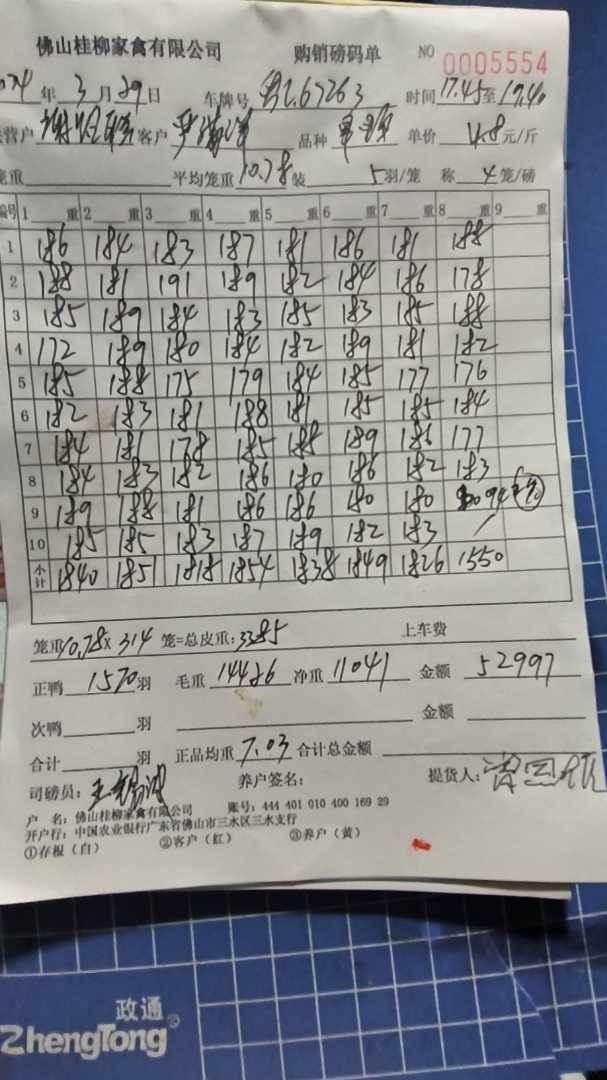 佛山桂柳家禽有限公司 购销磅码单 NO 0005554
年 3 月 29 日 车牌号 67263 时间 17.45 至 19.40
营户 客户 品种 单价 4.8 元/斤
笼重 平均笼重 10.78 装 5 羽/笼 称 4 笼/磅
编号 1 重 2 重 3 重 4 重 5 重 6 重 7 重 8 重 9 重
1 186 184 183 187 181 186 181 188
2 188 181 191 189 182 184 186 178
3 185 189 184 183 185 183 185 188
4 172 189 180 184 182 189 181 182
5 185 188 175 179 184 185 177 176
6 182 183 181 188 181 185 185 184
7 184 181 178 185 188 189 186 177
8 184 183 182 186 180 186 182 183
9 189 188 181 186 186 180 180 94
10 185 185 183 187 189 182 183
小计 1840 1851 1818 1854 1838 1849 1826 1550
笼重 10.78 × 314 笼=总皮重: 3385 上车费
正鸭 1570 羽 毛重 14426 净重 11041 金额 52997
次鸭 羽 金额
合计 羽 正品均重 7.03 合计总金额
司磅员: 养户签名: 提货人:
户 名: 佛山桂柳家禽有限公司 账号: 444 401 010 400 169 29
开户行: 中国农业银行广东省佛山市三水区三水支行
①存根（白） ②客户（红） ③养户（黄）
政通®
ZhengTong